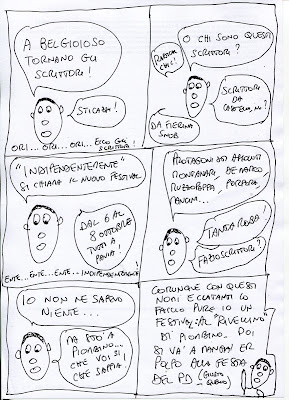 A BELGIOIOSO
TORNANO GLI
SCRITTORI!
STICAZZI!
ORI... ORI... ORI... ECCO GLI
SCRITTORI!
O CHI SONO QUESTI
SCRITTORI?
SCRITTORI
DA
DA FIERINA
SNOB
"INDIPENDENTEMENTE"
SI CHIAMA IL NUOVO FESTIVAL
DAL 6 AL
8 OTTOBRE
TUTTI A
PAVIA!
ENTE... ENTE... ENTE... INDIPENDENTEMENTE
PROTAGONISTI ASSOLUTI
MONTANARI, DE MARCO
PULSATILLA, PORPORA,
TANTA ROBA!
FA20 SCRITTORI?
IO NON NE SAPEVO
NIENTE...
MA STO' A
PIOMBINO...
CHE VOI SI
CHE SAPPIA.
COMUNQUE CON QUESTI
NOMI ECLATANTI LO
FACCIO PURE IO UN
FESTIVAL AL RIVELLINO
DI PIOMBINO. POI
SI VA A MANGIAR ER
POLPO ALLA FESTA
DEL PD (GIUSTO
QUELLO)